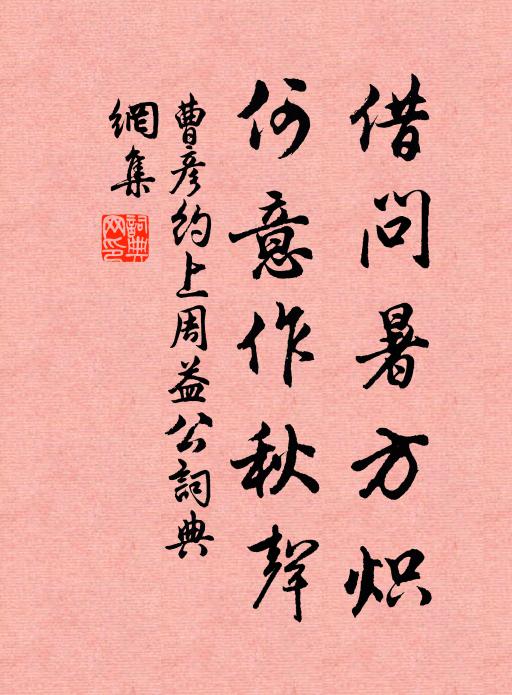 借问暑方炽
何意作秋聲
曹彦約上周益公詞典
網集
詞典網印